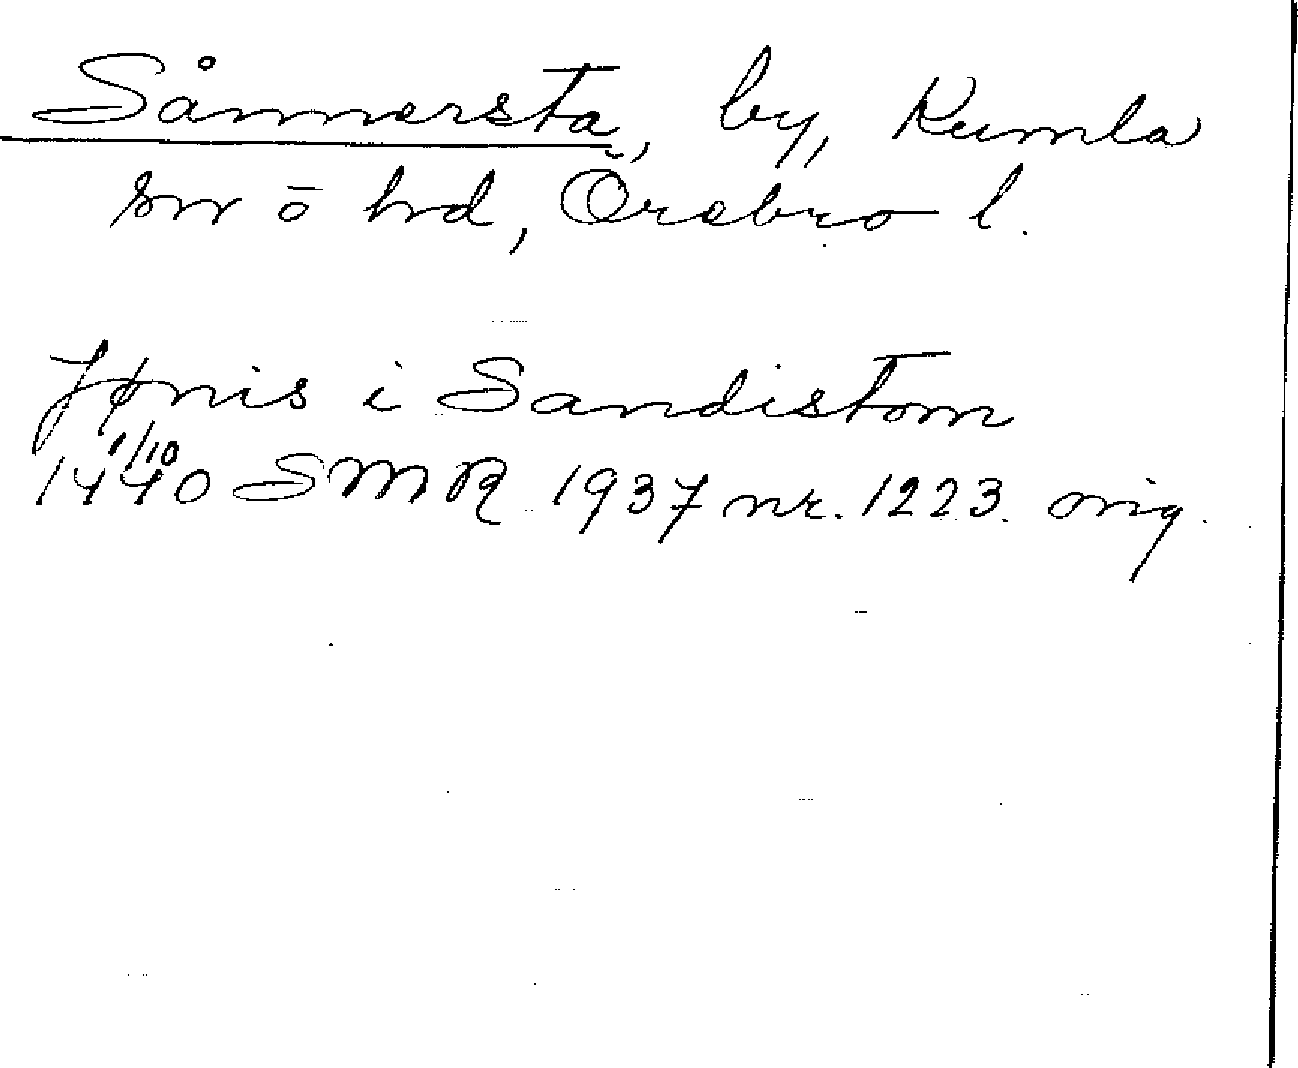 Sånnersta, by, Kumla
sn o hd, Örebro l.
Jønis i Sandistom
1440 1/10 SMR 1937 nr. 1223 orig.